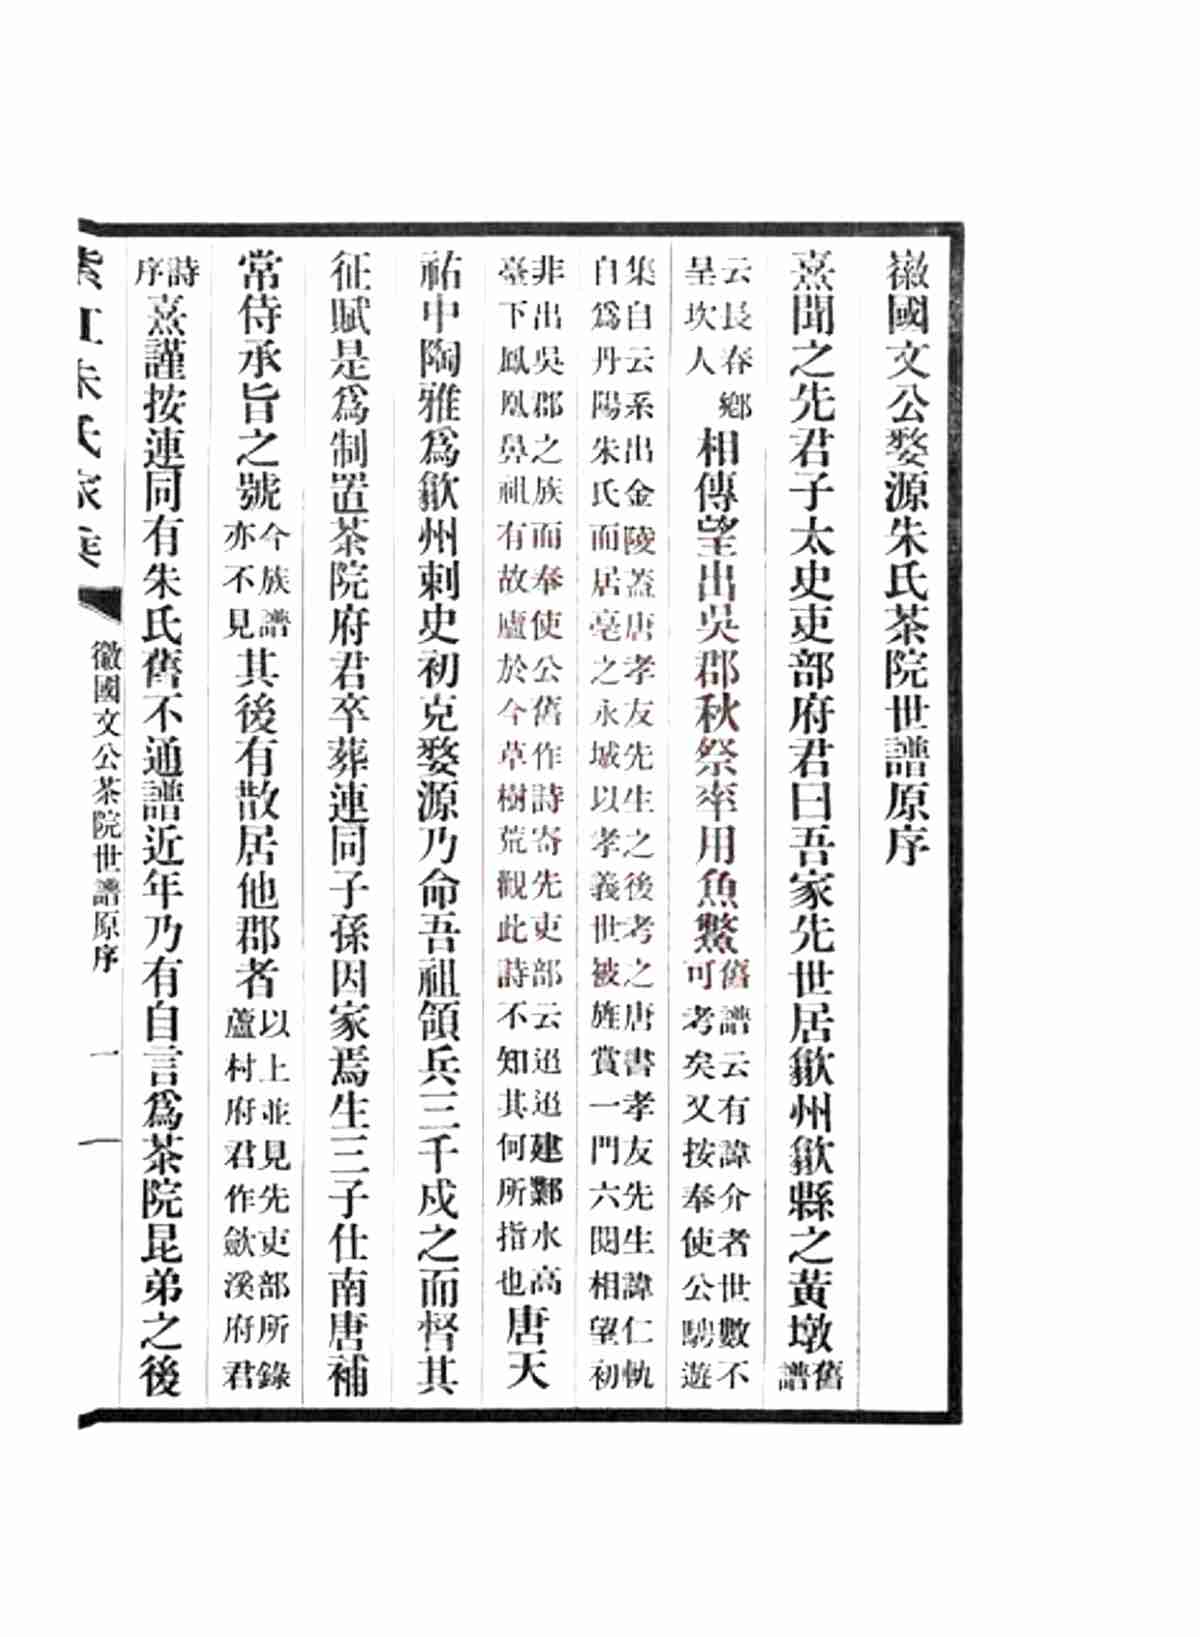 徽國文公婺源朱氏茶院世譜原序
熹聞之先君子太史吏部府君曰吾家先世居歙州歙縣之黃墩舊譜
云長春鄉呈坎人相傳望出吳郡秋祭率用魚鱉舊譜云有諱介者世數不可考矣又按奉使公騁遊
集自云系出金陵蓋唐孝友先生之後考之唐書孝友先生諱仁軌自爲丹陽朱氏而居亳之永城以孝義世被旌賞一門六闕相望初
非出吳郡之族而奉使公舊作詩寄先吏部云迢迢建鄴水高臺下鳳凰鼻祖有故廬於今草樹荒觀此詩不知其何所指也唐天
祐中陶雅爲歙州刺史初克婺源乃命吾祖領兵三千戍之而督其
征賦是爲制置茶院府君卒葬連同子孫因家焉生三子仕南唐補
常侍承旨之號今族譜亦不見其後有散居他郡者以上並見先吏部所錄蘆村府君作歙溪府君
詩序熹謹按連同有朱氏舊不通譜近年乃有自言爲茶院昆弟之後
紫江朱氏家乘
徽國文公茶院世譜原序
一